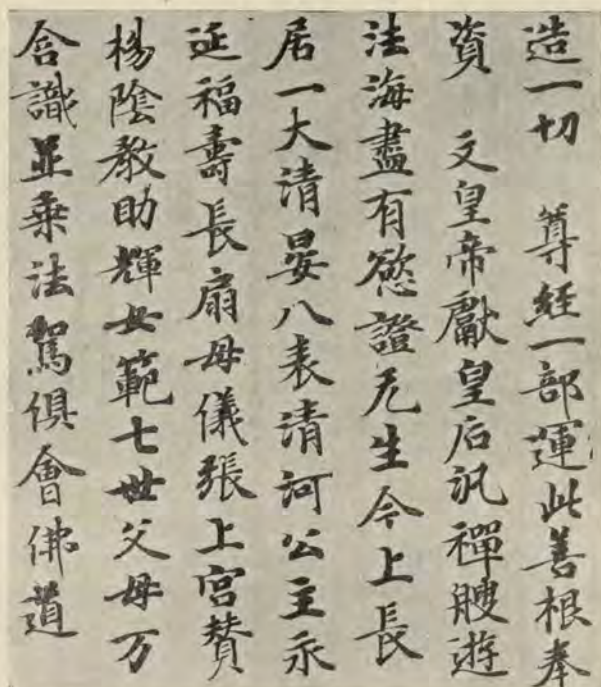 造一切　尊經一部運此善根奉
資　文皇帝獻皇后汎禪艘遊
法海盡有慾證无生今上長
居一大清晏八表清河公主永
延福壽長扇母儀張上宮贊
楊陰教助輝女範七世父母万
含識並乗法駕俱會佛道